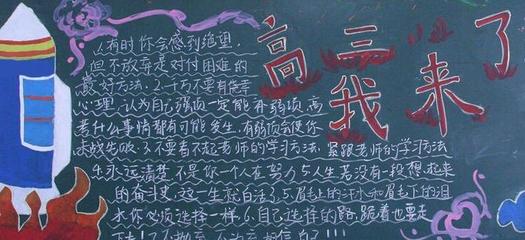 高三
我来了
1.有时你会感到绝望,
但不放弃是对付困难的
最好方法.2.千万不要有侥幸
心理,认为自己强项一定能补弱项,高
考什么事情都有可能发生,有弱项会使你
未战先败.3.不要看不起老师的学习方法,紧跟老师的学习方法
4.永远清楚,不是你一个人在努力.5.人生若没有一段想起来
的奋斗史,这一生就白活了.5.眉毛上的汗水和眉毛下的泪
水你必须选择一样.6.自己选择的路,跪着也要走